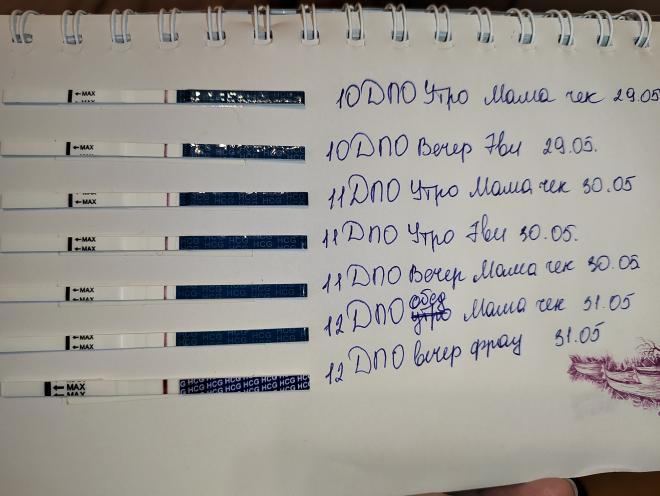 ←MAX 10ДПО Утро Мама чек 29.05
←MAX 10ДПО Вечер Эви 29.05.
←MAX 11ДПО Утро Мама чек 30.05
←MAX 11ДПО Утро Эви 30.05.
←MAX 11ДПО Вечер Мама чек 30.05
←MAX 12ДПО обед утро Мама чек 31.05
←MAX HCG HCG HCG HCG HCG HCG 12ДПО вечер фрау 31.05